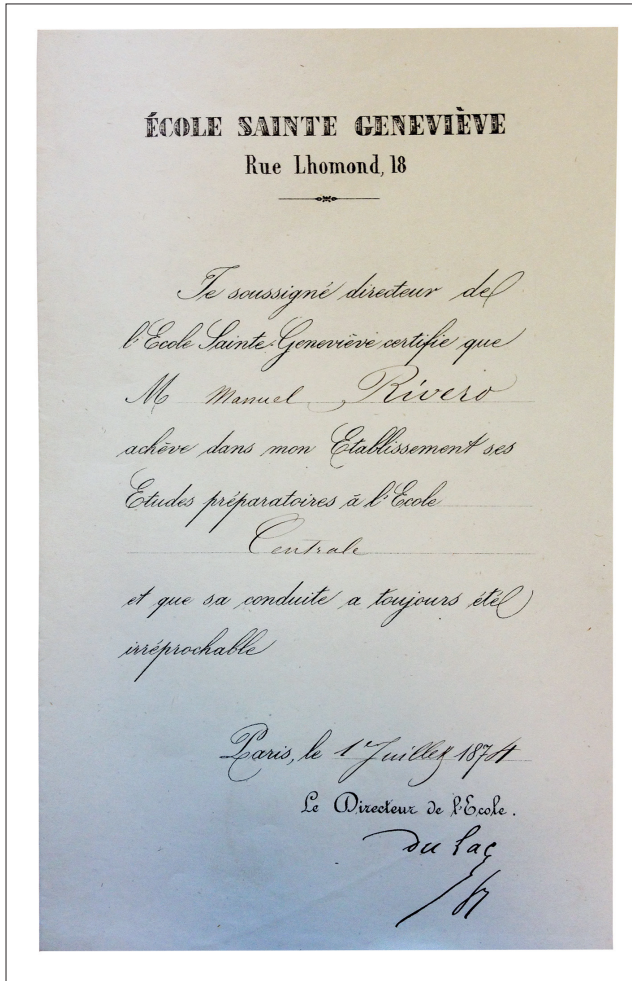 ÉCOLE SAINTE GENEVIÈVE
Rue Lhomond, 18
Je soussigné directeur de
l'Ecole Sainte-Geneviève certifie que
M Manuel Rivero
achève dans mon Etablissement ses
Etudes préparatoires à l'Ecole
Centrale
et que sa conduite a toujours été
irréprochable
Paris, le 1er Juillet 1874
Le Directeur de l'Ecole.
du Lac